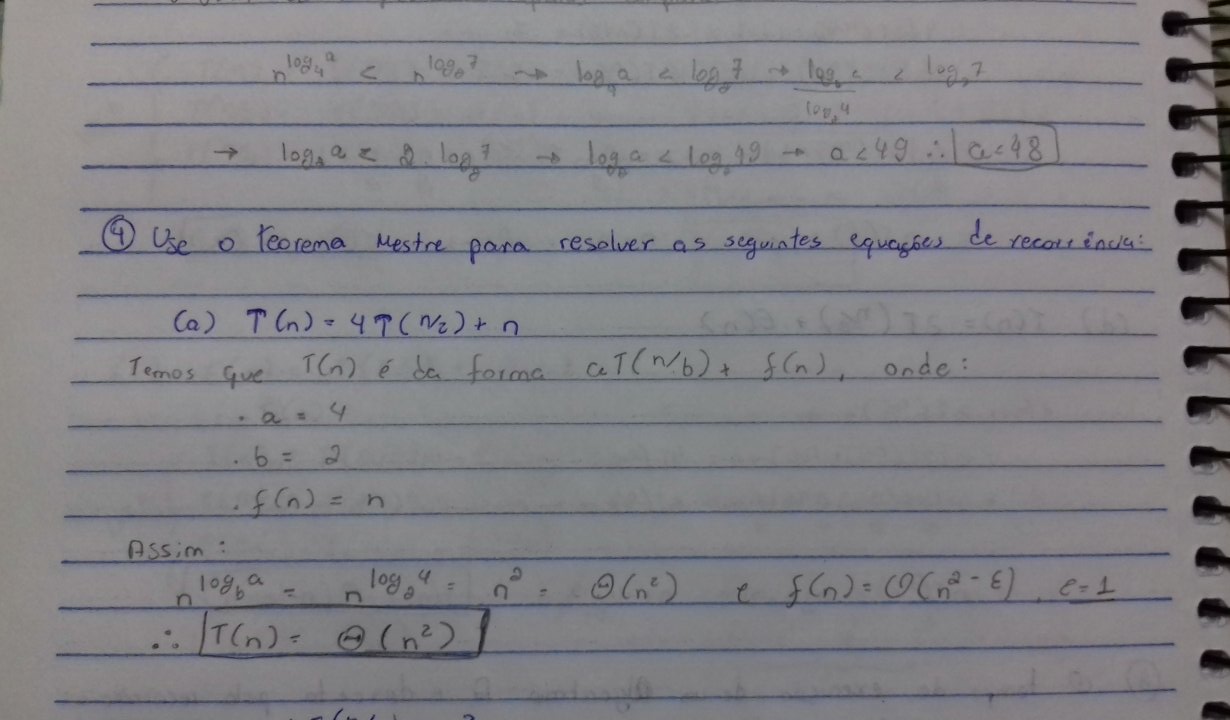 n^log₄a < n^log₂7 → log₄a < log₂7 → log₂a/log₂4 < log₂7
→ log₂a < 2.log₂7 → log₂a < log₂49 → a < 49 ∴ a < 48
④ Use o teorema Mestre para resolver as seguintes equações de recorrência:
(a) T(n) = 4T(n/2) + n
Temos que T(n) é da forma aT(n/b) + f(n), onde:
. a = 4
. b = 2
. f(n) = n
Assim:
n^log_b a = n^log₂4 = n² = Θ(n²) e f(n) = O(n^2-ε), ε = 1
∴ T(n) = Θ(n²)